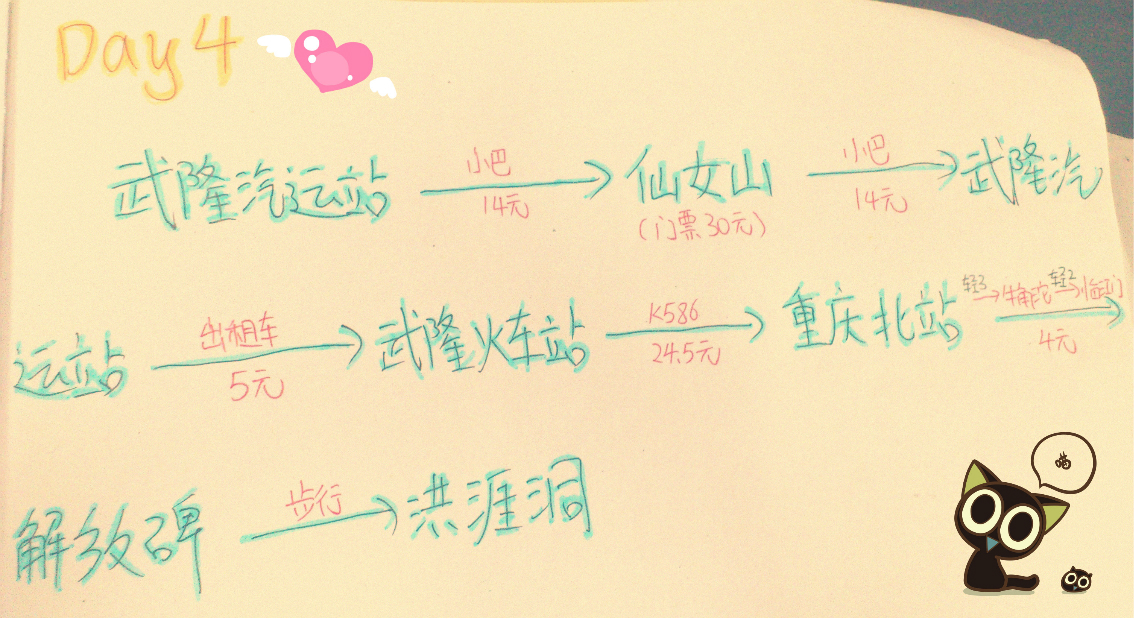 Day 4
武隆汽运站 小巴 14元 仙女山 (门票30元) 小巴 14元 武隆汽
运站 出租车 5元 武隆火车站 K586 24.5元 重庆北站 轻3 牛角沱 轻2 临江门 4元
喵
解放碑 步行 洪涯洞